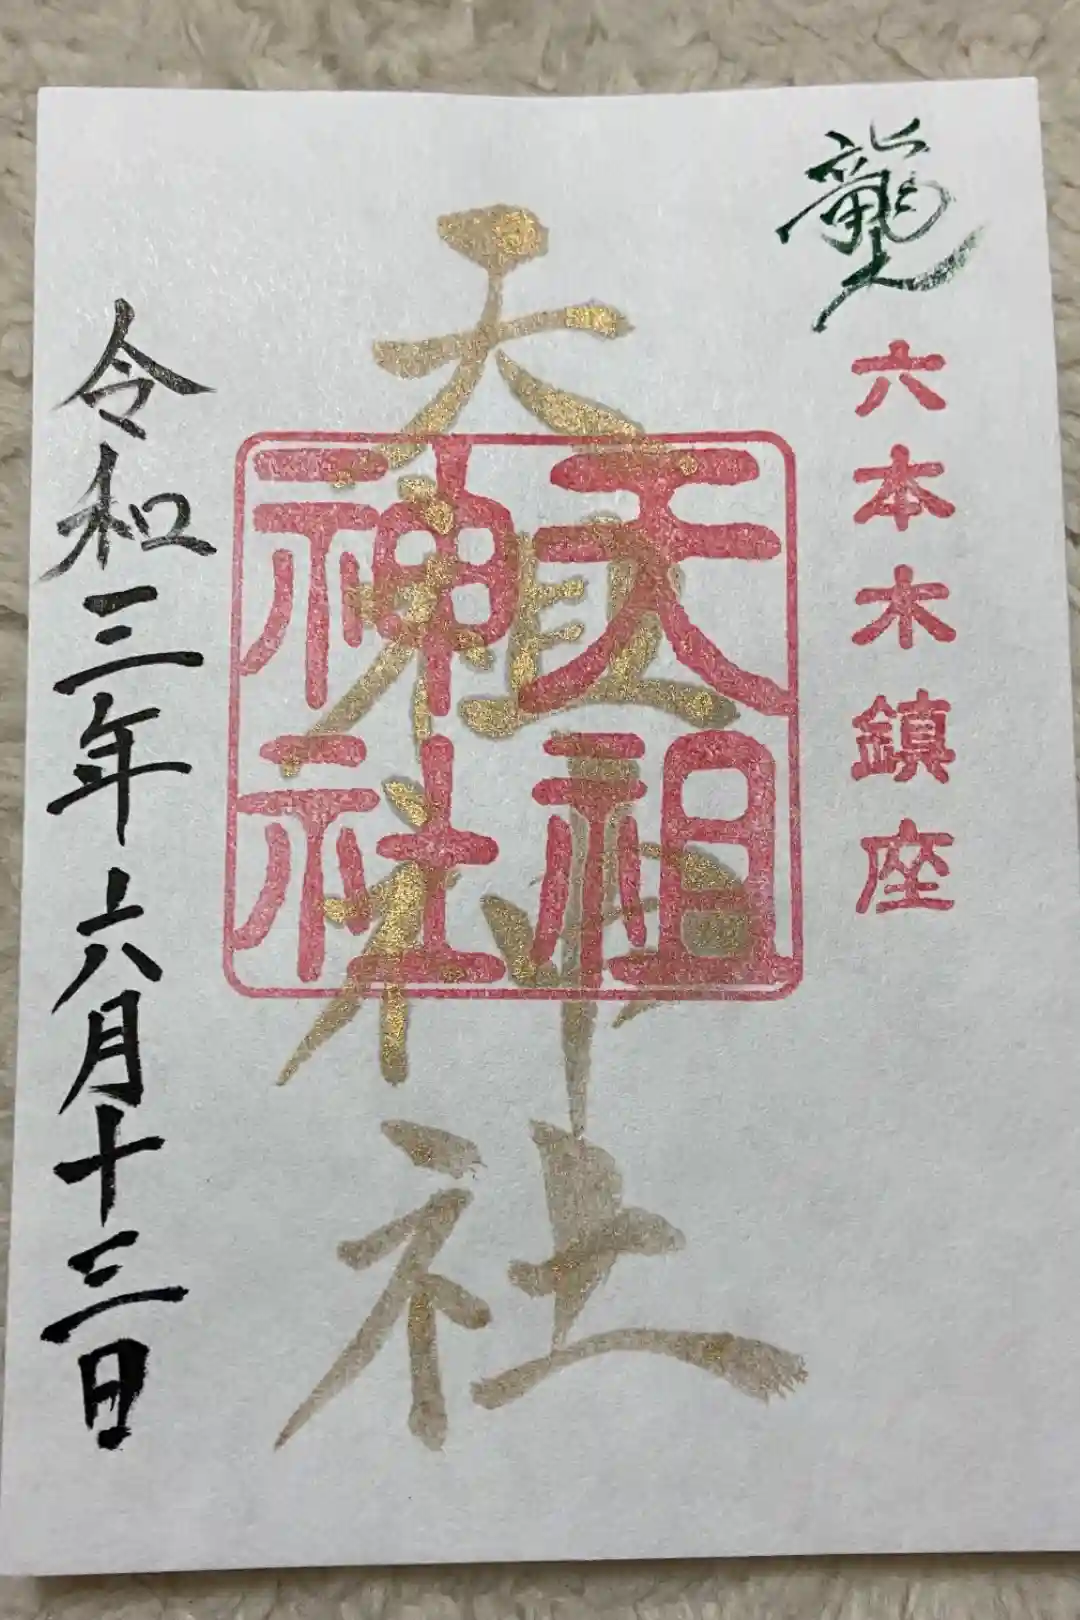 龍土
六本木鎮座
天祖神社
天祖神社
令和三年六月十三日